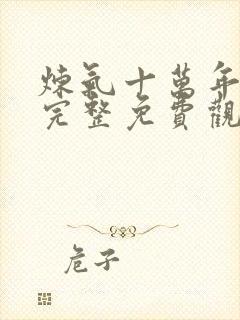 煉氣十萬年
完整免費觀
危子